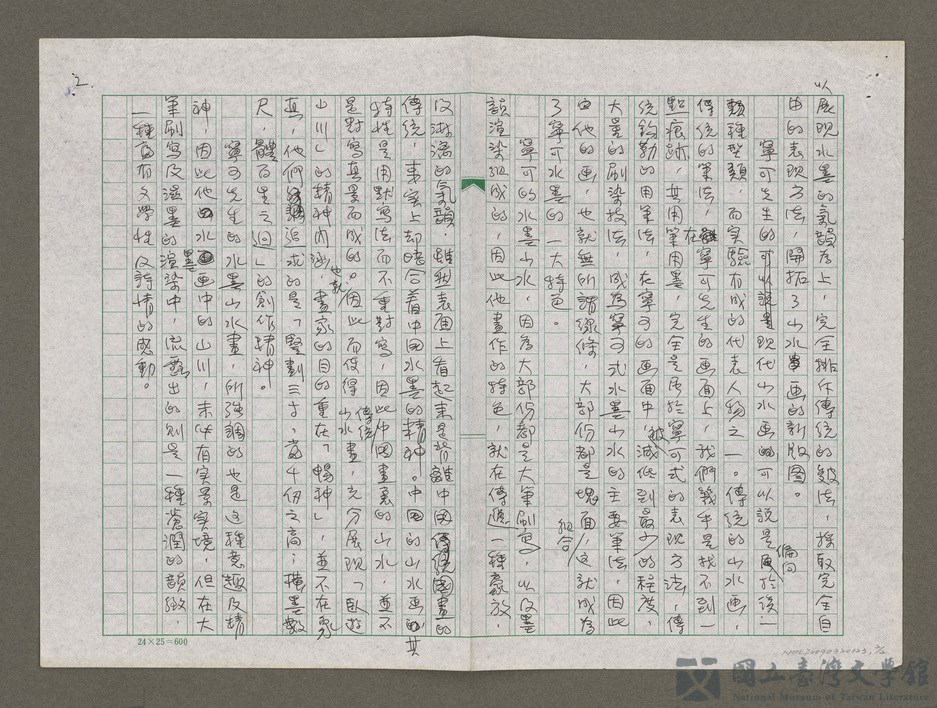 2.
以展現水墨的氣韻為上，完全排斥傳統的皴法，採取完全自
由的表現方法，開拓了山水畫的新版圖。
寧可先生的現代山水画可以說是偏向於後一
類種型類，而實驗有成的代表人物之一。傳統的山水画，
傳統的筆法，在寧可先生的画面上，我們幾乎是找不到一
點痕跡，其用筆用墨，完全是屬於寧可式的表現方法，傳
統鈎勒的用筆法，在寧可的画面中，被減低到最少的程度，
大量的刷染技法，成為寧可式水墨山水的主要筆法，因此
由他的画，也就無所謂線條，大部份都是塊面組合，這就成為
了寧可水墨的一大特色。
寧可的水墨山水，因為大部份都是大筆刷寫，以及墨
韻渲染組成的，因此他畫作的特色，就在傳遞一種豪放，
及淋漓的氣韻，雖然表面上看起來是背離中國傳統國畫的
傳統，事實上却暗合着中國水墨的精神。中國的山水画其
特性是用默寫法而不重對寫，因此中國畫裏的山水，並不
是對寫真景而成的。因此而使得傳統山水畫，充分展現「臥遊
山川」的精神內涵，也就畫家的目的重在「暢神」，並不在乎
真，他們追求的是「豎劃三寸，當千仞之高；橫墨數
尺，體百里之迥」的創作精神。
寧可先生的水墨山水畫，所強調的也是這種意趣及精
神，因此他的水墨画中的山川，未必有实景实境，但在大
筆刷寫及濕墨的渲染中，流露出的則是一種蒼潤的韻緻，
一種富有文學性及詩情的感動。
24×25＝600
國立臺灣文學館
National Museum of Taiwan Literature